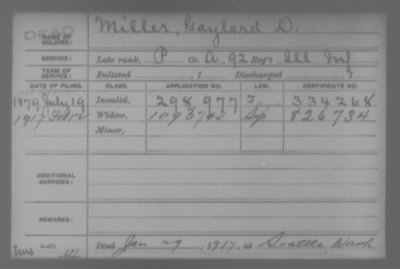 DEAD
NAME OF SOLDIER: Miller, Gaylord D.
SERVICE: Late rank, P Co. A, 92 Reg't Ill Inf
TERM OF SERVICE: Enlisted , 1 Discharged , 1
DATE OF FILING. CLASS. APPLICATION NO. LAW. CERTIFICATE NO.
1879 July 19 Invalid, 298,977 334268
1917 Widow, 826734
Minor,
ADDITIONAL SERVICES:
REMARKS:
Died Jan 29, 1917, at Seattle, Wash